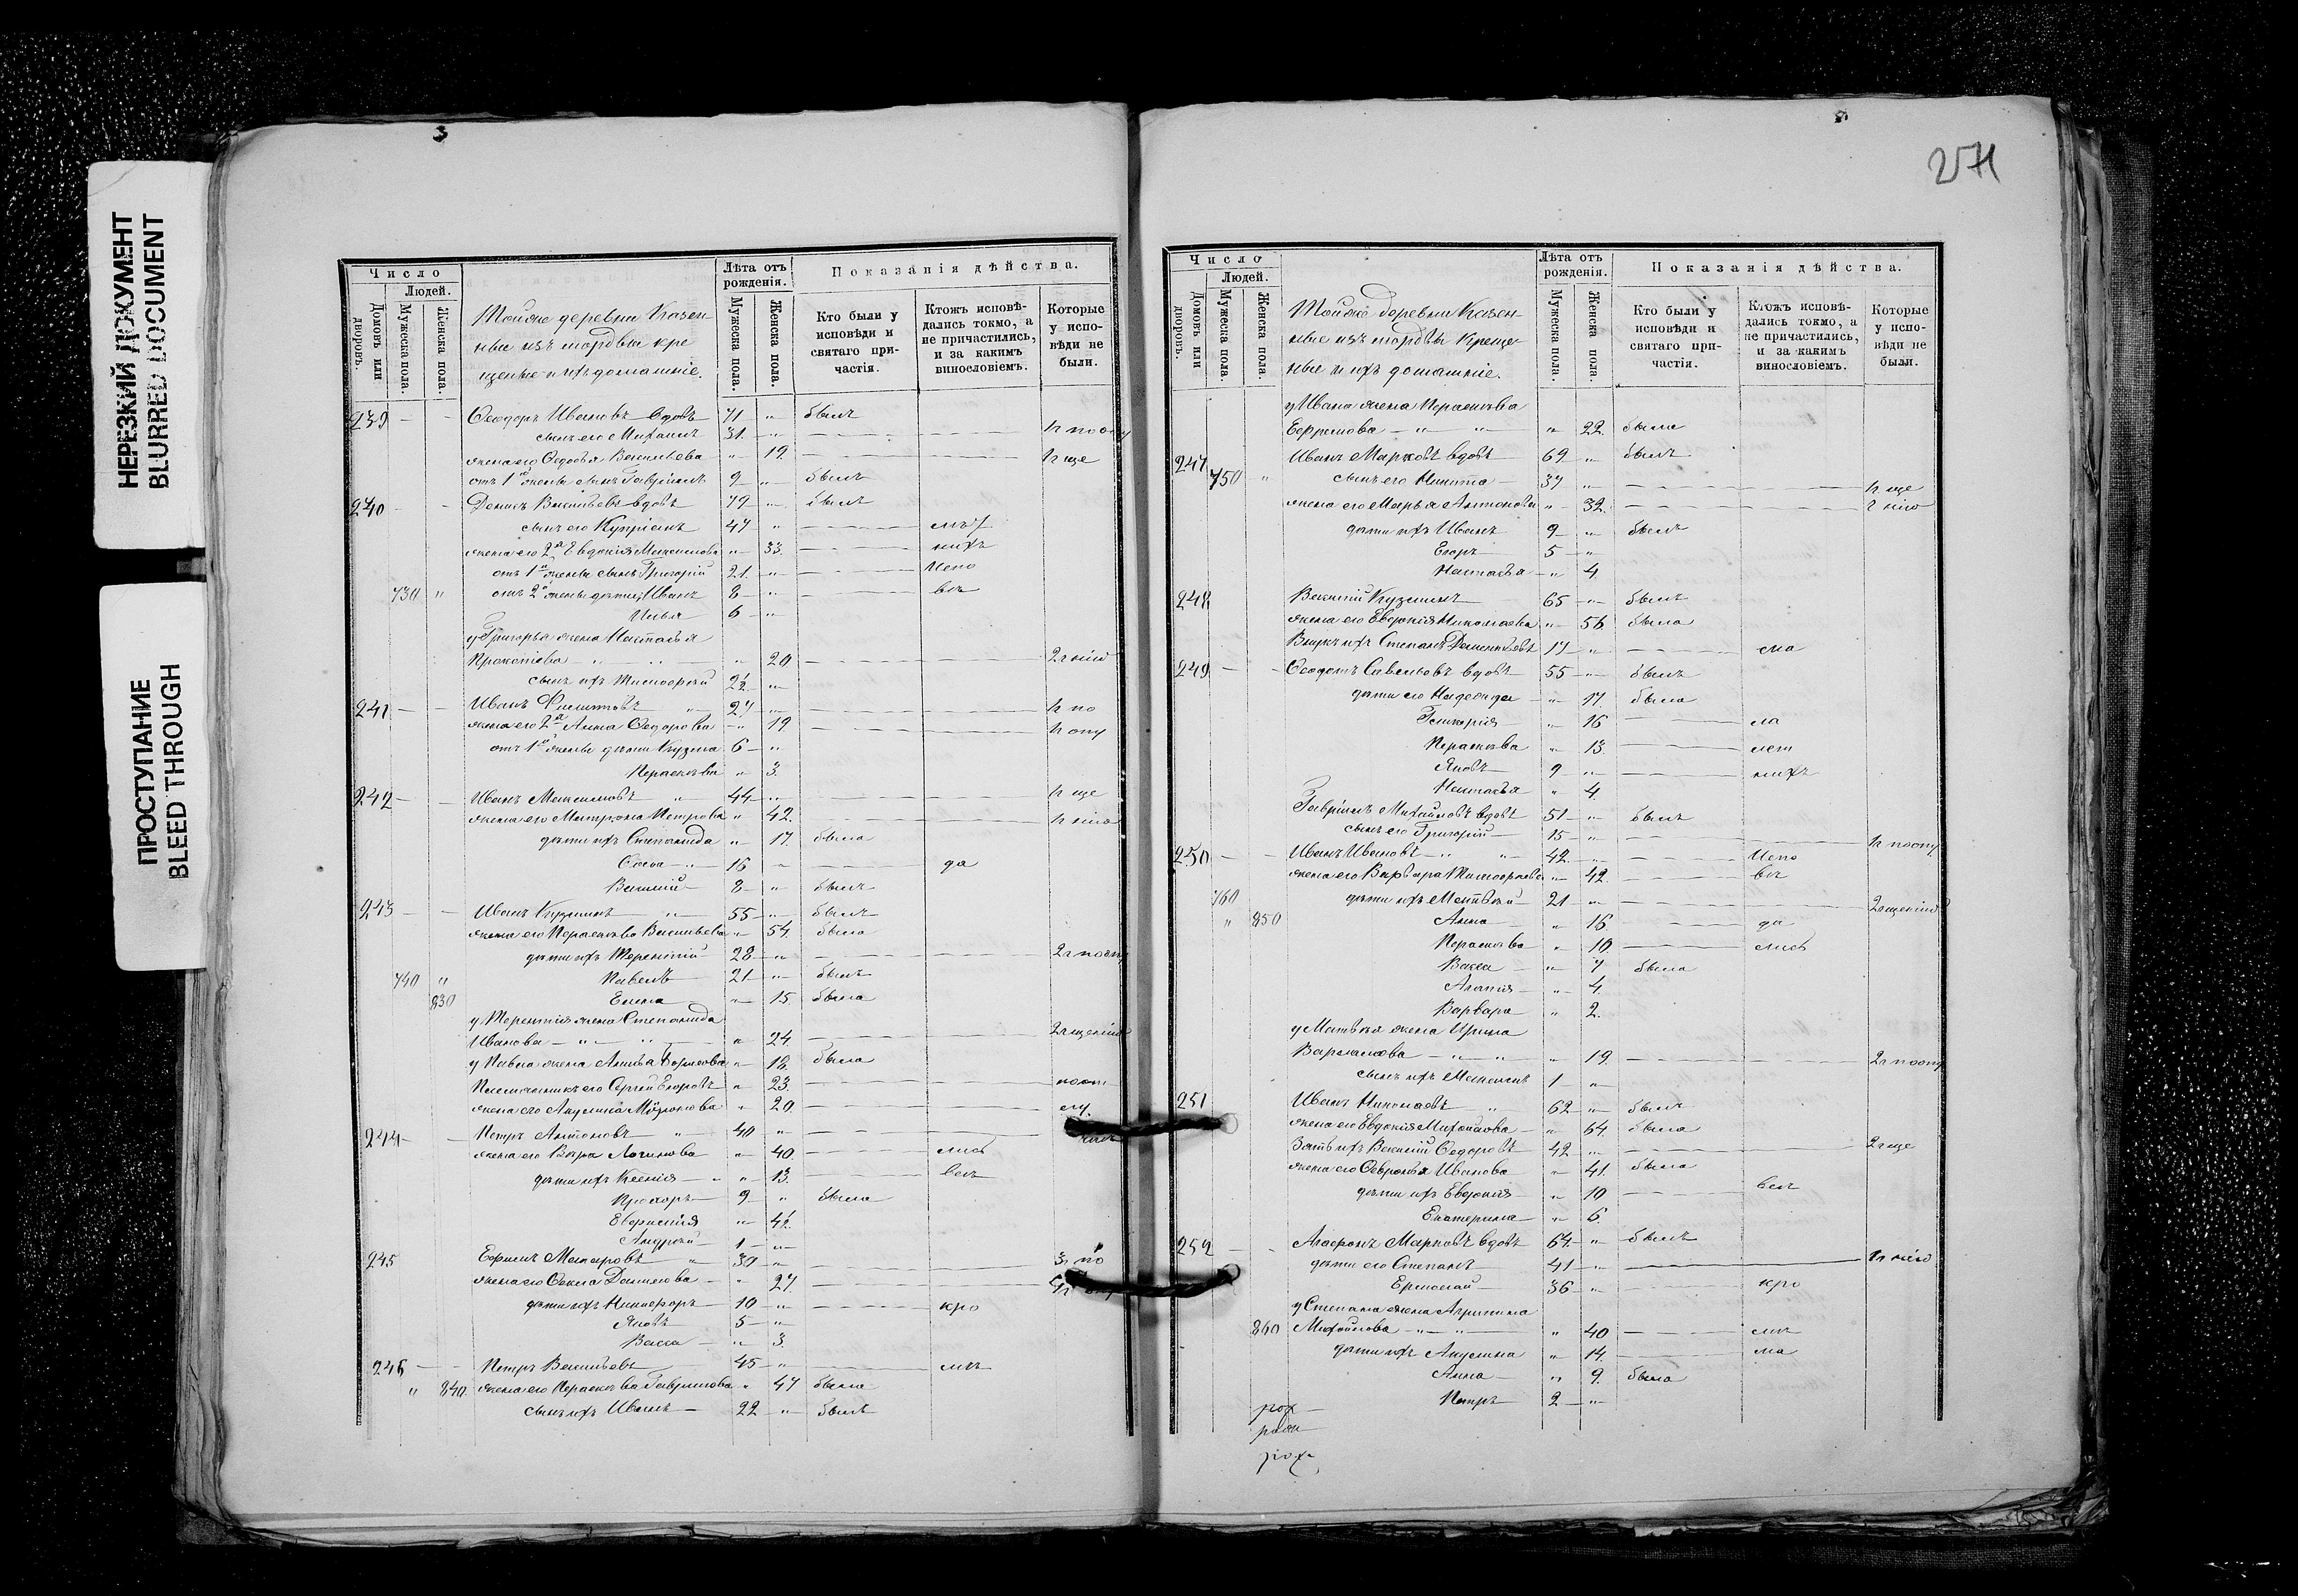 НЕРЕЗКИЙ ДОКУМЕНТ
BLURRED DOCUMENT
ПРОСТУПАНИЕ
BLEED THROUGH
3
Число
Людей.
Домовъ или дворовъ.
Мужеска пола.
Женска пола.
Тойже деревни Казен-
ные изъ мордвы кре
щеные и ихъ домашніе.
Лѣта отъ рожденія.
Мужеска пола.
Женска пола.
Показанія дѣйства.
Кто были у исповѣди и святаго при-частія.
Ктожъ исповѣ-дались токмо, а не причастились, и за какимъ винословіемъ.
Которые у испо-вѣди не были.
239 — — Ѳеодоръ Ивановъ вдовъ 71 " былъ
сынъ его Михаилъ 31 "
жена его Ѳедосья Васильева " 19
отъ 1й жены сынъ Гавріилъ 9 " былъ
240 — — Денисъ Васильевъ вдовъ 79 " былъ
сынъ его Купріянъ 47 "
жена его 2я Евдокія Максимова " 33 нихъ
отъ 1й жены сынъ Григорій 21 " Испо
730 " отъ 2й жены дѣти: Иванъ 8 "
Илья 6 "
у Григорья жена Настасья
Прокопіева " 20
сынъ ихъ Тимоѳей 2½ "
241 — — Иванъ Филиповъ 27 " по
жена его 2я Анна Ѳедорова " 19
отъ 1й жены дѣти Кузма 6 "
Парасковья " 3
242 — — Иванъ Максимовъ 44 " ще
жена его Матрона Петрова " 42
дѣти ихъ Степанида " 17 была
16 " да
Василій 8 " былъ
243 — — Иванъ Кузминъ 55 " былъ
жена его Парасковья Васильева " 54 была
дѣти ихъ Терентій 28 "
740 " Павелъ 21 " былъ
830 Елена " 15 была
у Терентія жена Степанида
Иванова " 24
у Павла жена Анна " 18 была
Племянникъ его Сергѣй Егоровъ " 23
жена его Акулина Миронова " 20
244 — — Петръ Антоновъ 40 "
жена его Вѣра Логинова " 40 лись
дѣти ихъ Ксенія " 13
Прохоръ 9 " была
Евдокія " 4½
Андрей 1 "
245 Ефимъ Макаровъ 30 " по
жена его Ѳекла Данилова " 27
дѣти ихъ Никифоръ 10 " кро
Яковъ 5 "
Васса " 3
246 — — Петръ Васильевъ 45 "
" 840 жена его Парасковья Гаврилова " 47 была
сынъ ихъ Иванъ 22 " былъ
271
Число
Людей.
Домовъ или дворовъ.
Мужеска пола.
Женска пола.
Тойже деревни Казен-
ные изъ мордвы Креще-
ные и ихъ домашніе.
Лѣта отъ рожденія.
Мужеска пола.
Женска пола.
Показанія дѣйства.
Кто были у исповѣди и святаго при-частія.
Ктожъ исповѣ-дались токмо, а не причастились, и за какимъ винословіемъ.
Которые у испо-вѣди не были.
у Ивана жена Парасковья
Ефремова " 22 была
247 Иванъ Марковъ вдовъ 69 " былъ
750 " сынъ его Никита 37 " ще
жена его Марья Антонова " 32 нію
дѣти ихъ Иванъ 9 " былъ
Егоръ 5 "
Настасья " 4
248 Василій Кузминъ 65 " былъ
жена его Евдокія Николаева " 56 была
Внукъ ихъ Степанъ 17 "
249 — — Ѳеодотъ Савельевъ вдовъ 55 " былъ
дѣти его Надежда " 17 была
Гликерія " 16
Парасковья " 13
Яковъ 9 " нихъ
Настасья " 4
Гавріилъ Михайловъ вдовъ 51 " былъ
сынъ его Григорій 15 "
250 — — Иванъ Ивановъ 42 " Испо
жена его Варвара Тимоѳеева " 42
760 дѣти ихъ Матвѣй 21 "
" 850 Анна " 16 да
Парасковья " 10 лись
Васса " 7 была
Агапія " 4
Варвара " 2
у Матвѣя жена Ирина
Варламова " 19
сынъ ихъ Максимъ 1 "
251 Иванъ Николаевъ 62 " былъ
жена его Евдокія Михайлова " 64 была
Зять ихъ Василій Ѳедоровъ 42 " ще
жена его Ѳевронья Иванова " 41 была
дѣти ихъ Евдокія " 10
Екатерина " 6
252 — — Агаѳонъ Марковъ вдовъ 64 " былъ
дѣти его Степанъ 41 " нію
Ермолай 36 " кро
у Степана жена Агрипина
860 Михайлова " 40
дѣти ихъ Акулина " 14
Анна " 9 была
Петръ 2 "